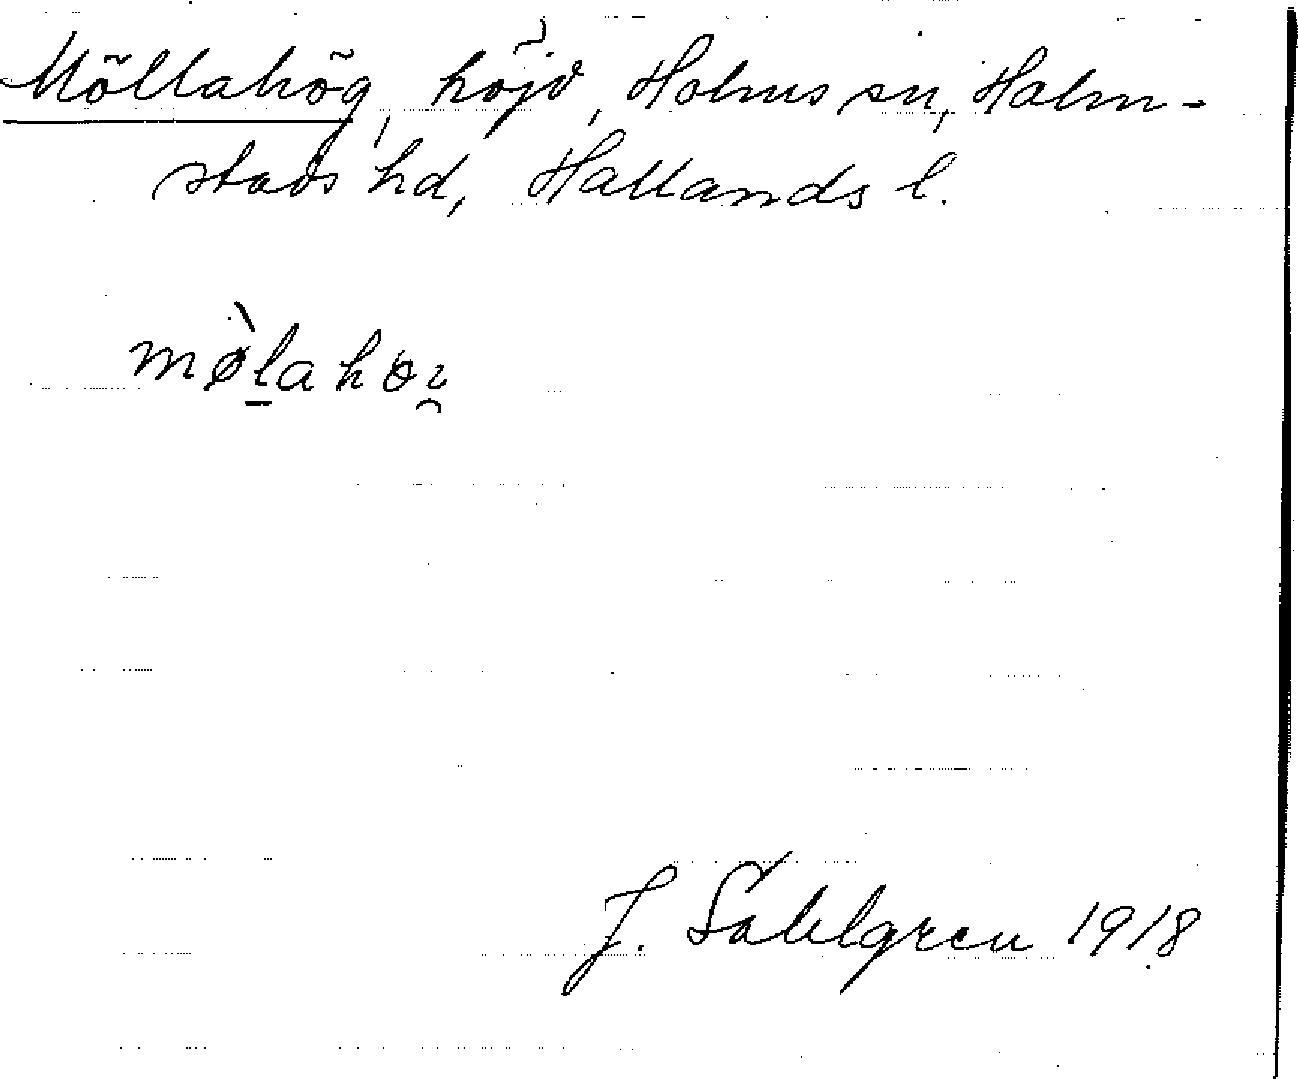 Möllahög, höjd, Holms sn, Halm-
stads hd, Hallands l.
mø̀l̠ahöi̯
J. Sahlgren 1918